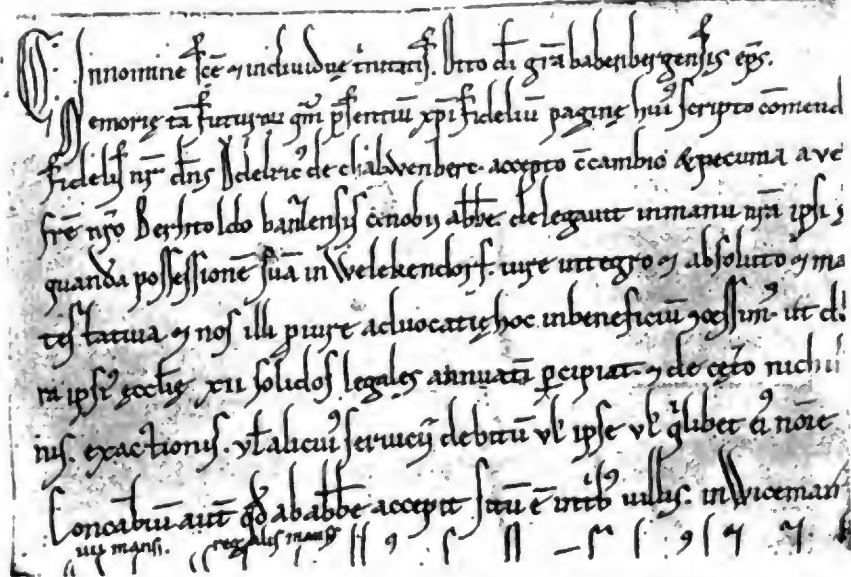 C. In nomine sc̄e ⁊ individuę t̓nitatis. Otto dī gr̄a babenbergensis ep̄s.
Memorię tā futuroꝝ qm̄ p̄sentiū xp̄i fidelium paginę hui᾽ scripto cōmend
fidelis nr̄ dn̄s Ŏdelric᾽ de chalwenberc. accepto c̄cambio & pecunia a ve
fr̄e nr̄o Berhtoldo banzensis cenobii abb̄e delegavit in manū nr̄a ipsi
quandā possessionē suā in Welekendorf. iure integro ⁊ absoluto ⁊ ma
⁊ nos illi p iure advocatię hoc in beneficiū ꝯcessim᾽. ut
ra ipsi᾽ ęcclię xii solidos legales annuatī ꝑcipiat. ⁊ de cęt̓o nichil
nis. exactionis. vl̄ alicui᾽ servicii debitū vl̄ ipse vl̄ q̓libet ei᾽ nōīe
Concābiū aut̄ qd̄ ab abb̄e accepit sitū ē in t̓b᾽ villis. in Wiceman
iiii mansi. regalis mans᾽